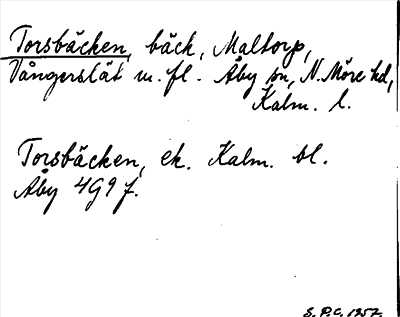 Torsbäcken, bäck, Maltorp,
Vångerslät m. fl. Åby sn, N. Möre hd,
Kalm. l.
Torsbäcken, ek. Kalm. bl.
Åby 4G9f.
S.P.C. 1957.